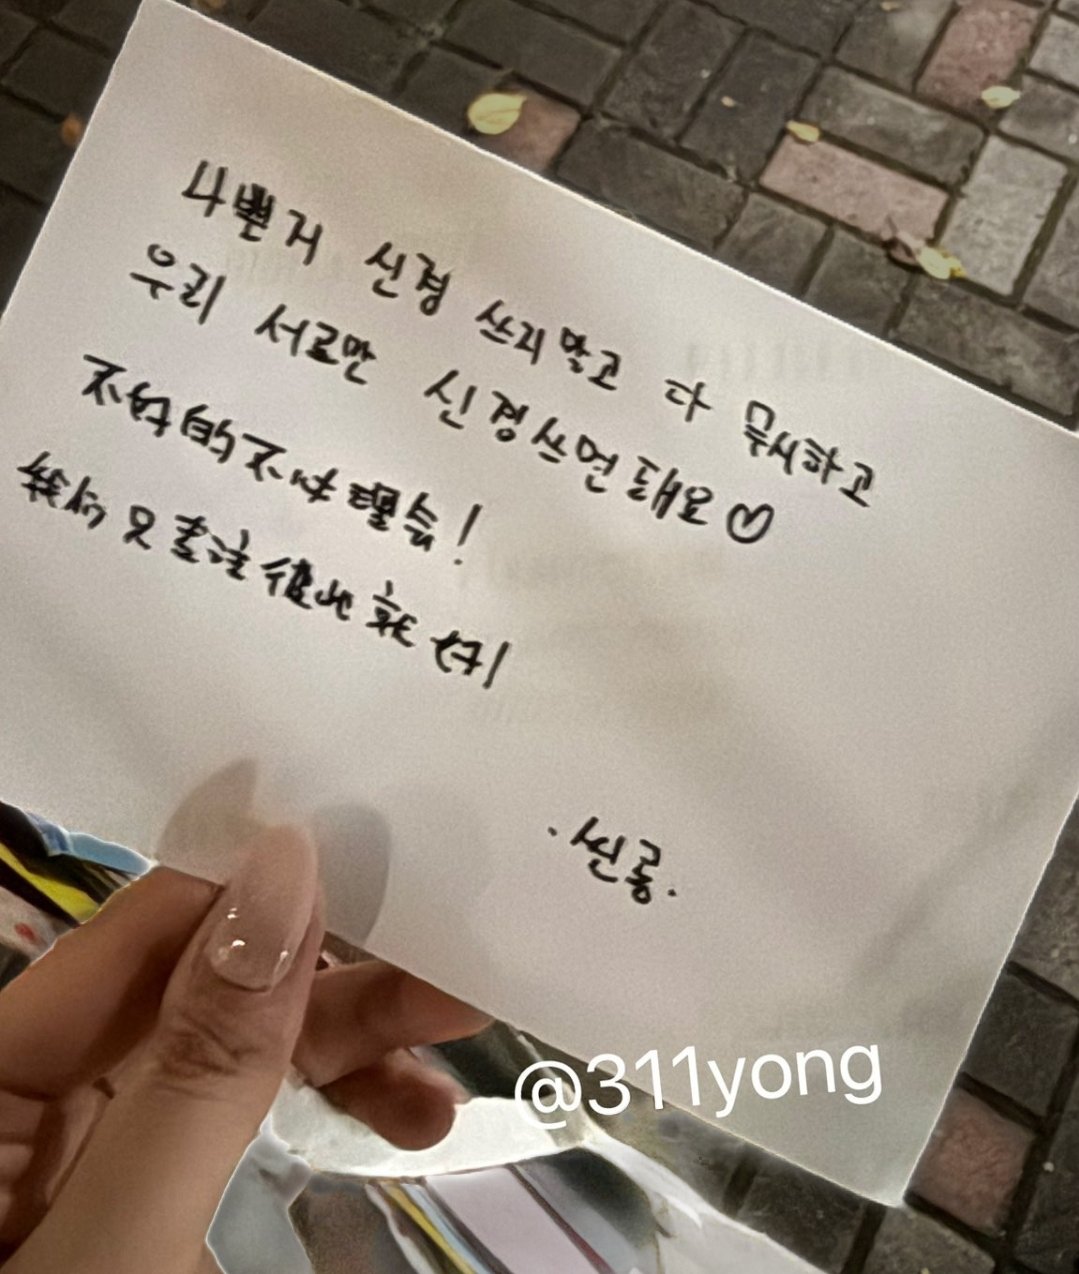 나쁜거 신경 쓰지말고 다 무시하고
우리 서로만 신경쓰면 돼요♡
不好的不佳理会!
我们只专注彼此就好!
·씬롱.
@311yong